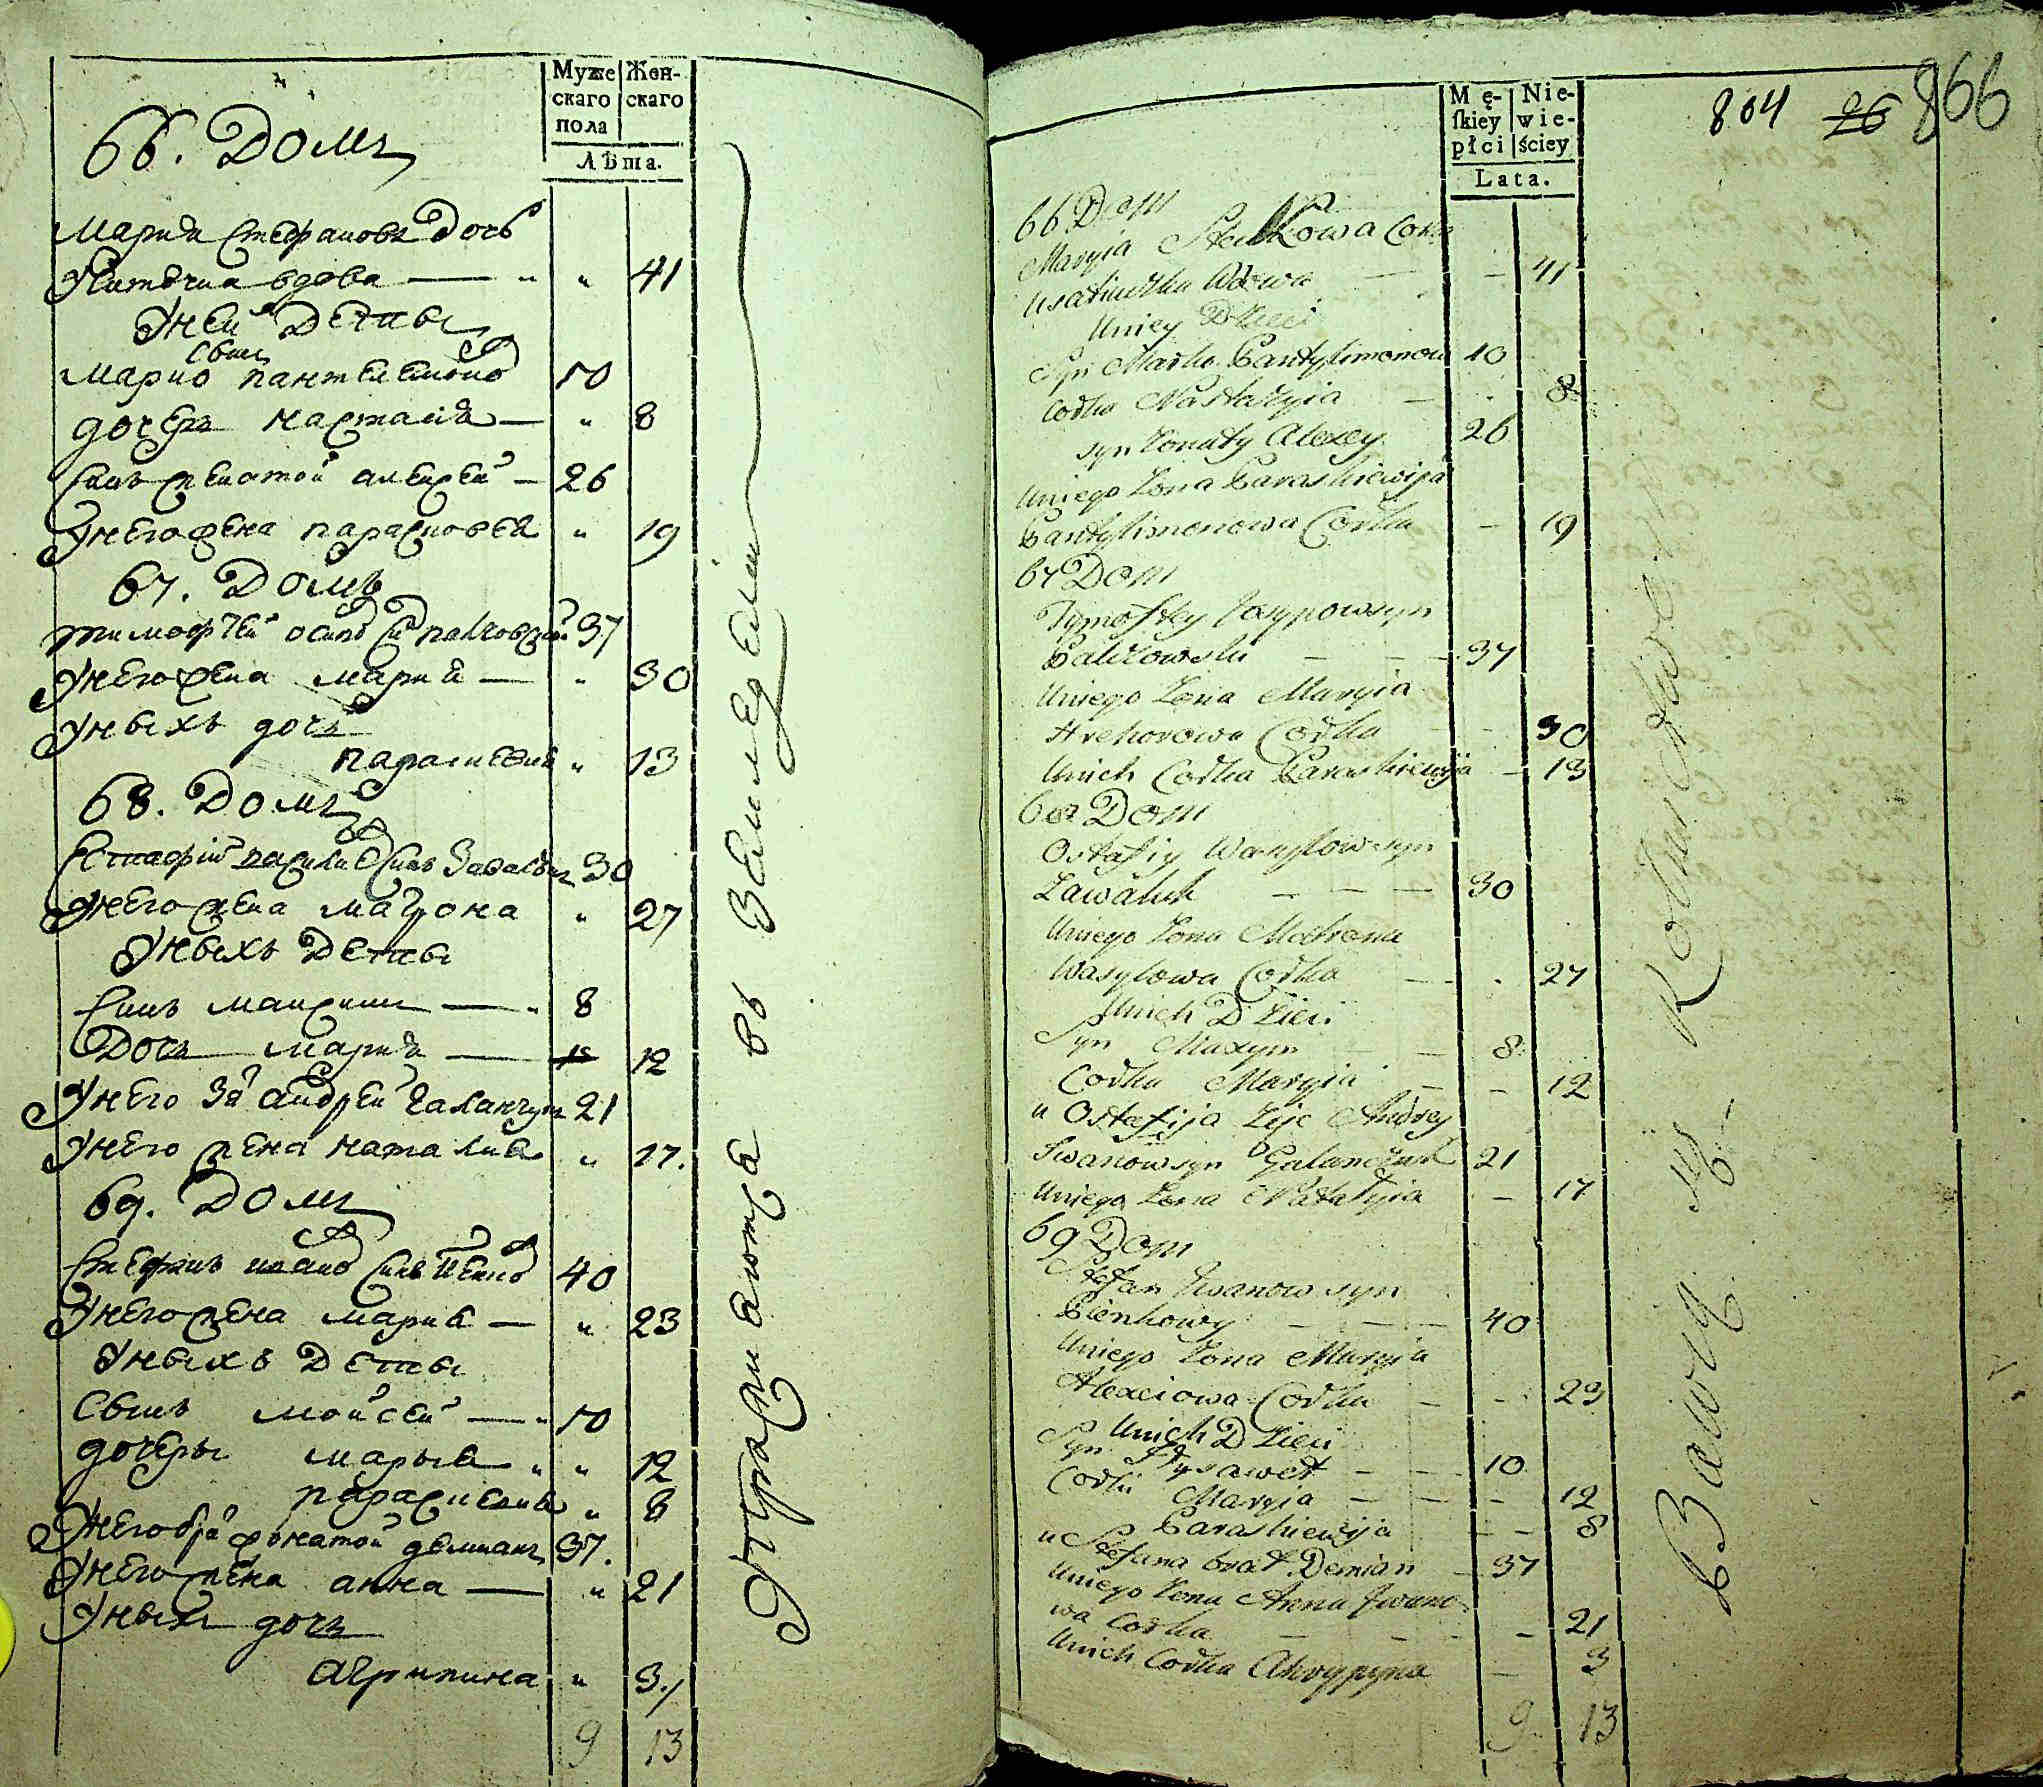 Муже Жен-
скаго скаго
пола
Лѣта.
66. Домъ
Мариа Стефановъ Дочь
вдова — " " 41
У ней Дети
сынъ
Марко Пантелемоновъ 10
дочеръ Настасиа — " 8
Сынъ женатой Алексей — 26
У него жена Парасковея " 19
67. Домъ
Тимофѣй Осиповъ сынъ Палховский 37
У него жена Мариа — " 30
У ныхъ дочь
Парасковиа " 13
68. Домъ
Естафий Василиевъ сынъ Завалюкъ 30
У него жена Матрона " 27
У ныхъ Дети
Сынъ Максимъ — " 8
Дочь Мариа — 12 12
У него зять Андрей Галанчукъ 21
У него жена Наталиа " 17.
69. Домъ
Стефанъ Ивановъ сынъ 40
У него жена Мариа — " 23
У ныхъ Дети
Сынъ Мойсей — " 10
дочеры Марыа " " 12
Парасковиа " 8
У него братъ женатой Демианъ 37.
У него жена Анна — " 21
У ныхъ дочь
Агрипина " 3.
9 13
въ Земледелии
Mę- Nie-
skiey wie-
płci ściey
Lata.
804 26 866
66 Dom
Maryia Stefkowa Cork
Wdowa — — 41
Uniey Dzieci
Syn Marko Pantylimonow 10
Corka Nastazyia — . 8
syn Zonaty Alexey 26
Uniego Zona Paraskiewija
Pantylimonowa Corka — 19
67 Dom
Tymofiey Josypow syn
Palizowski — — — 37
Uniego Zona Maryia
Hrehorowa Corka — 30
Unich Corka Paraskiewija — 13
68 Dom
Ostafiy Wasylow syn
Zawaluk — — — 30
Uniego Zona Matrona
Wasylowa Corka — . 27
Unich Dzieci
Syn Maxym — 8
Corka Maryia — — 12
u Ostafija Zięc Andrey
Iwanow syn Galanczuk 21
Uniego Zona Natalyia — 17
69 Dom
Stefan Iwanow syn
Pienkowy — — — 40
Uniego Zona Maryja
Alexiowa Corka — — 23
Unich Dzieci
Syn — — 10
Corki Maryia — — — 12
Paraskiewija — — 8
u Stefana brat Demian — 37
Uniego Zona Anna Iwano-
wa Corka — — — 21
Unich Corka Ahrypyna — 3
9 13
Bawią się Rolnictwem